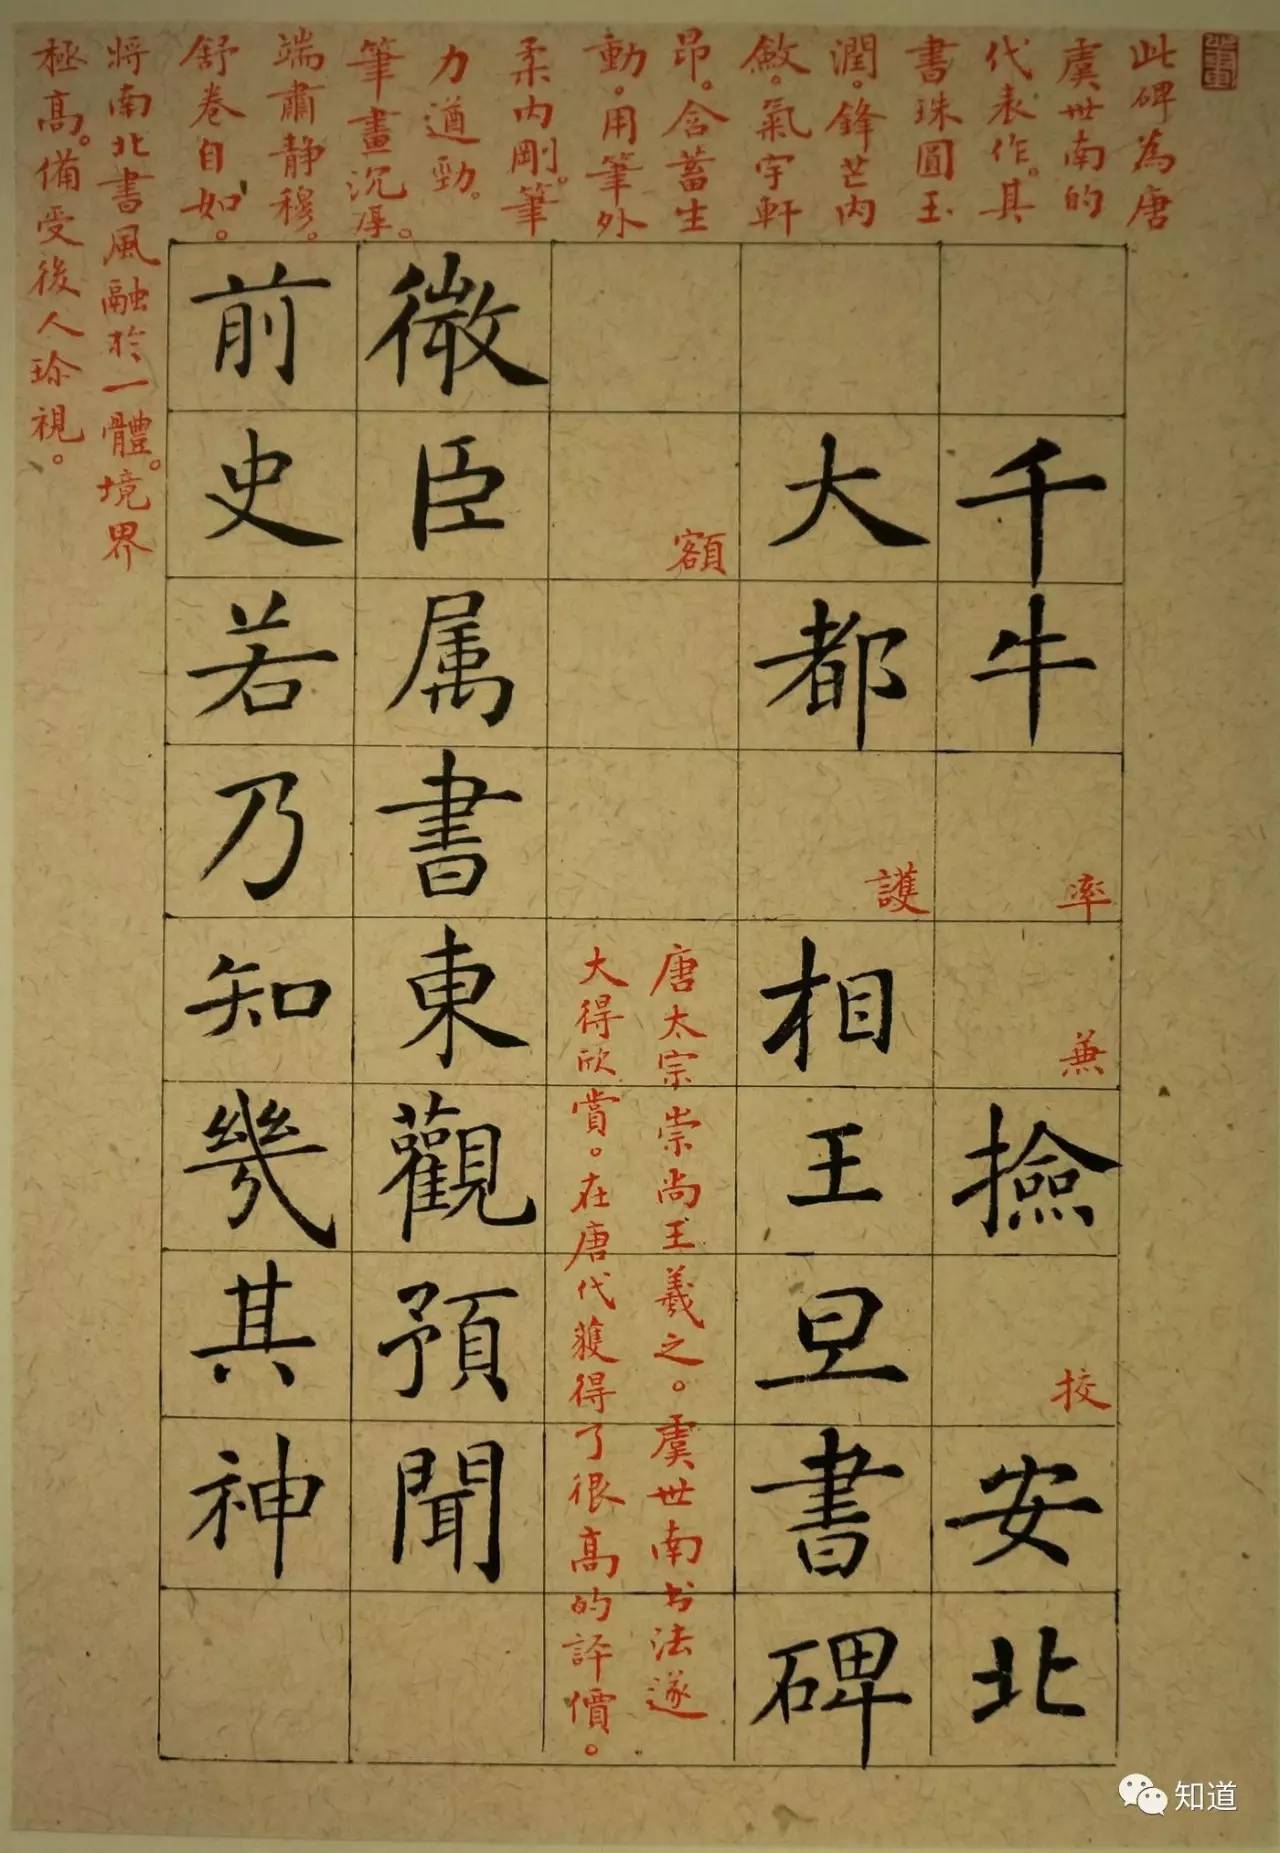 此碑為唐
虞世南的
代表作。其
書珠圓玉
潤。鋒芒内
斂。氣宇軒
昂。含蓄生
動。用筆外
柔内剛。筆
力遒勁。
筆畫沉厚。
端肅静穆。
舒卷自如。
將南北書風融於一體。境界
極高。備受後人珍視。
千牛率兼撿挍安北
大都護相王旦書碑
額
唐太宗崇尚王羲之。虞世南书法遂
大得欣賞。在唐代獲得了很高的評價。
微臣属書東觀預聞
前史若乃知幾其神
知道